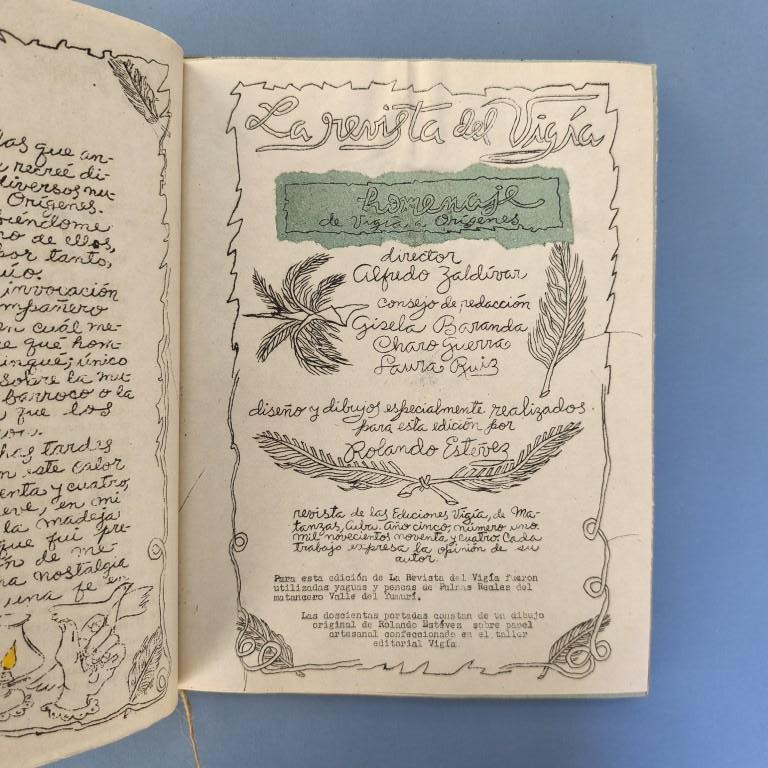 las que an-
recreé di-
diversos mu-
Orígenes.
iéndome
ro de ellos,
por tanto,
úo.
invocación
mpañero
en cuál me-
e qué hom-
ingué; único
sobre la mu-
barroco o la
que los
has tardes
n este calor
enta y cuatro,
eve, en mi
la madeja
que fui pre-
n de me-
na nostalgia
una fe en
La revista del Vigía
homenaje
de Vigía a Orígenes
director
Alfredo Zaldívar
consejo de redacción
Gisela Baranda
Charo Guerra
Laura Ruiz
diseño y dibujos especialmente realizados
para esta edición por
Rolando Estévez
revista de las Ediciones Vigía, de Ma-
tanzas, Cuba. Año cinco, número uno.
mil novecientos noventa y cuatro. Cada
trabajo expresa la opinión de su
autor.
Para esta edición de La Revista del Vigía fueron
utilizadas yaguas y pencas de Palmas Reales del
matancero Valle del Yumurí.
Las doscientas portadas constan de un dibujo
original de Rolando Estévez sobre papel
artesanal confeccionado en el taller
editorial Vigía.